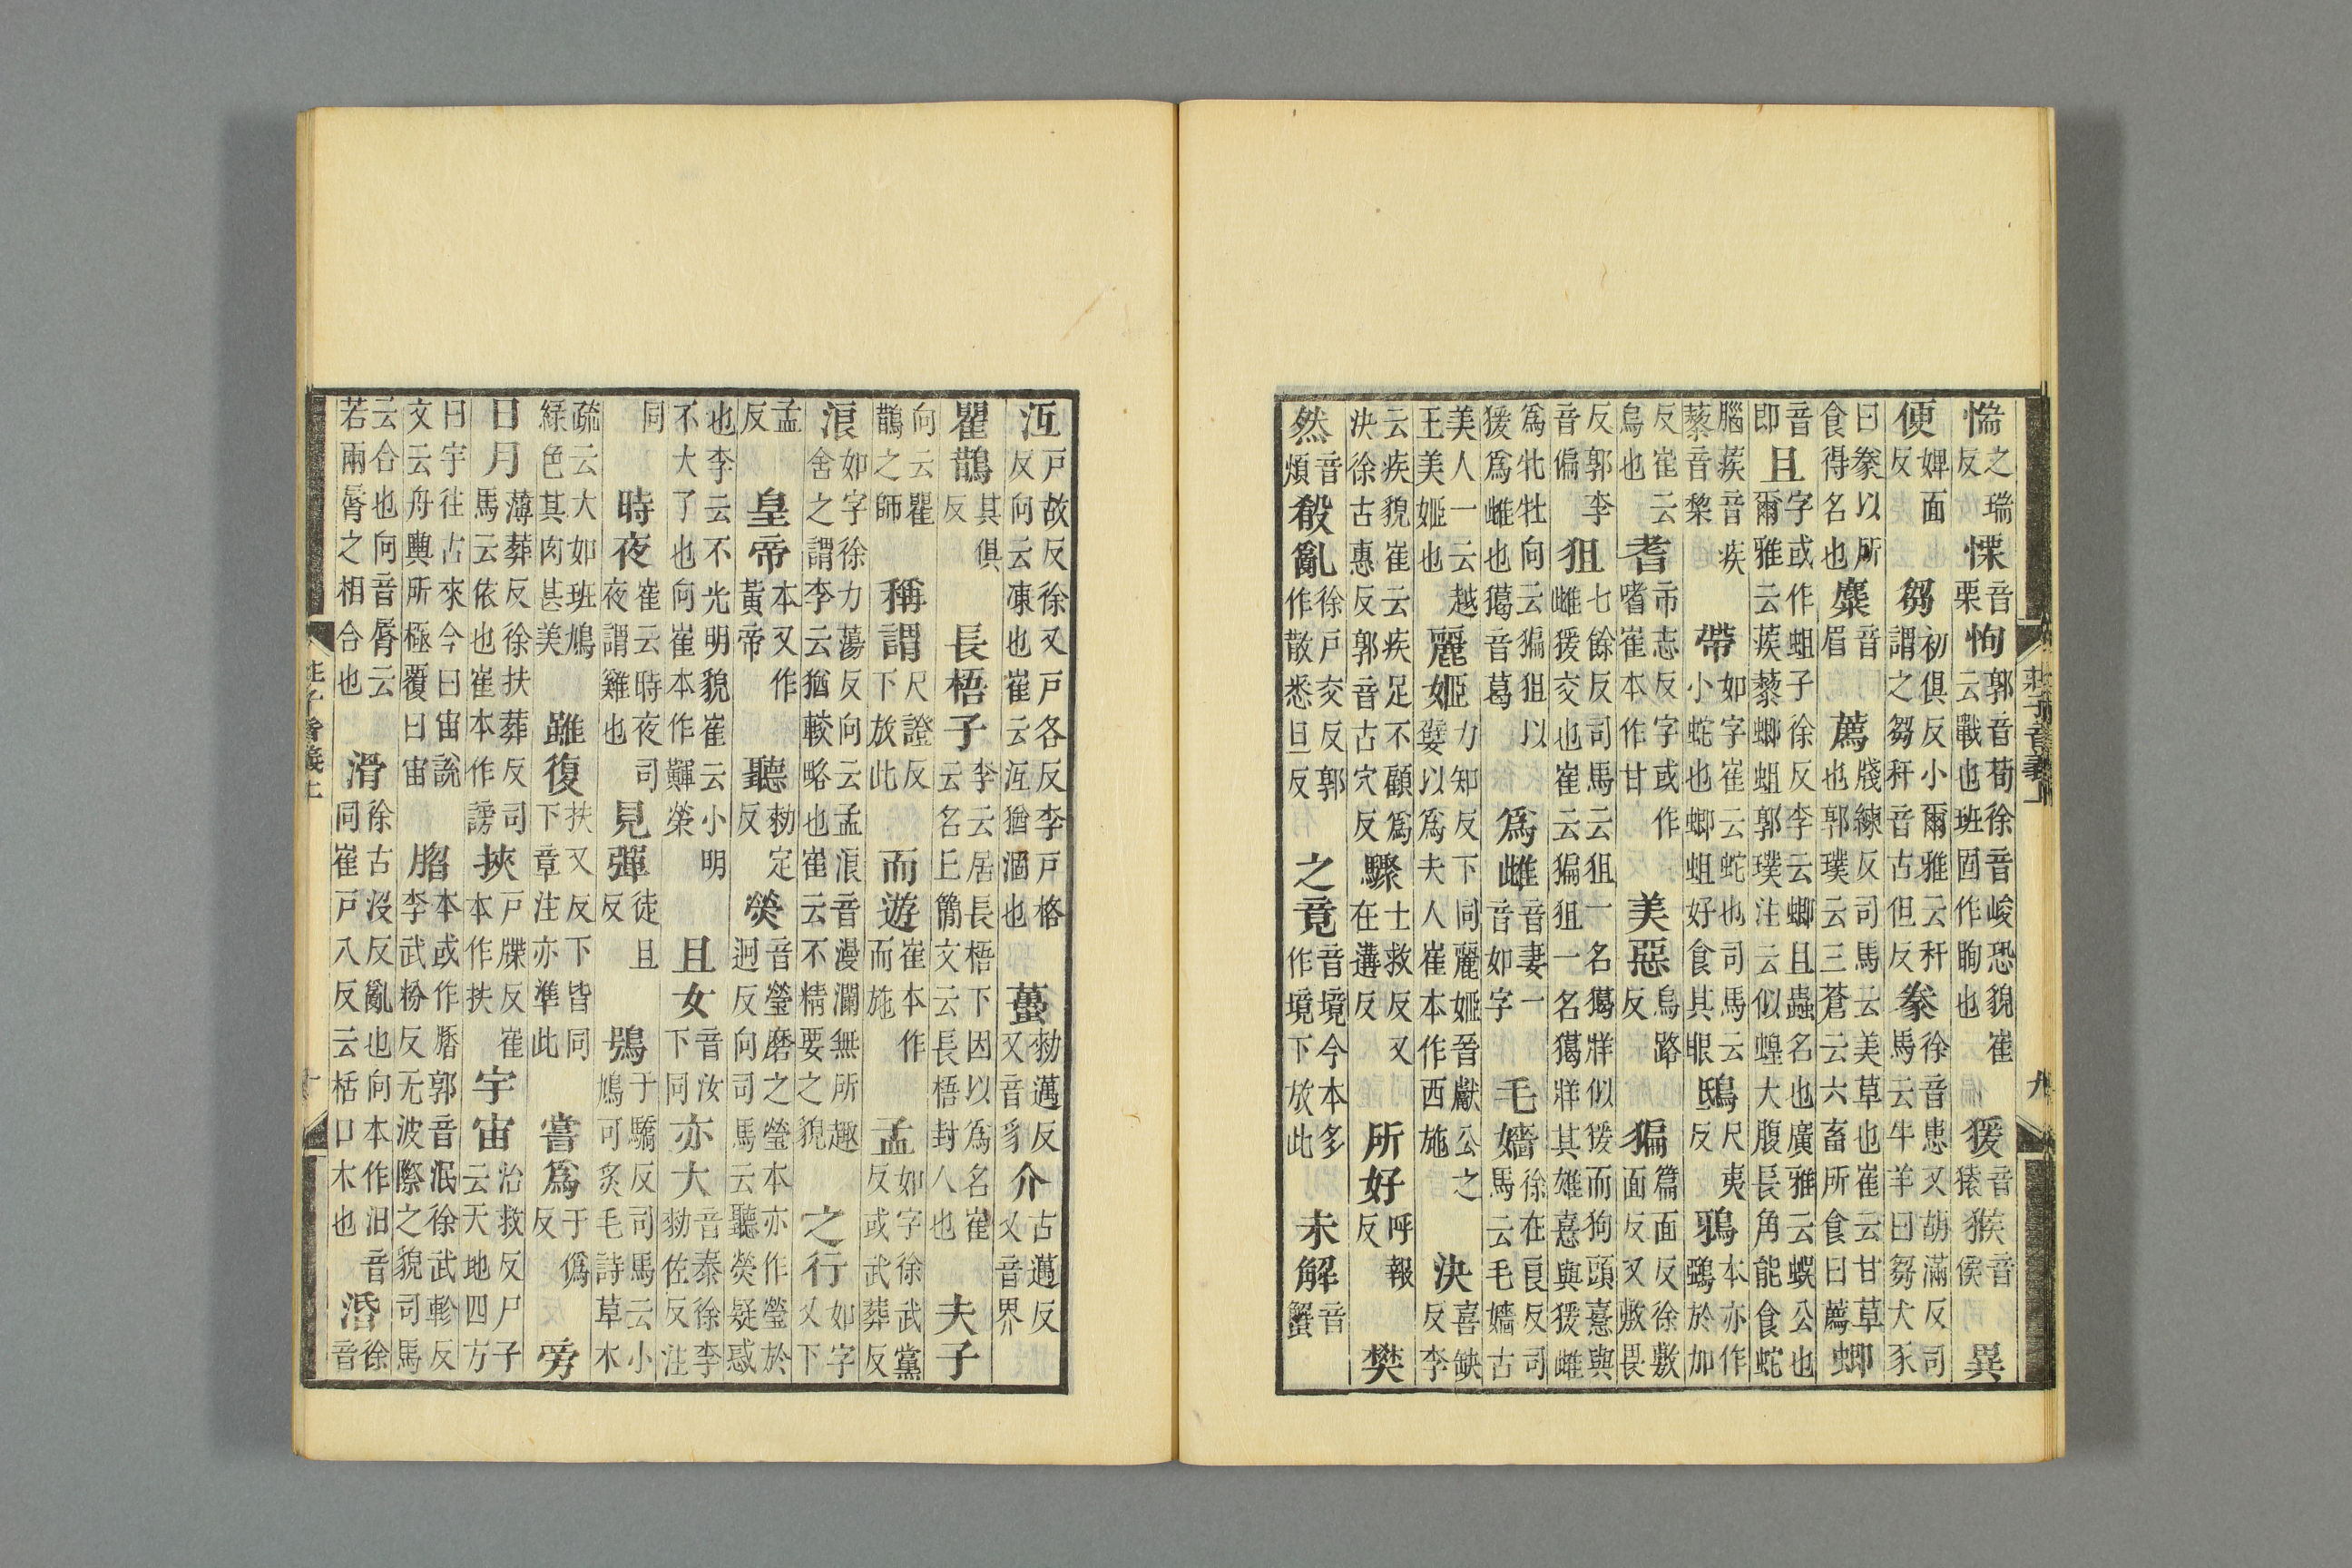 莊子音義上 九
惴之瑞反慄音栗恂郭音荀徐音峻恐貌崔云戰也班固作眴也猨音猿猴音侯異
便婢面反芻初俱反小爾雅云秆謂之芻秆音古但反豢徐音患又胡滿反司馬云牛羊曰芻犬豕
曰豢以所食得名也麋音眉薦牋練反司馬云美草也崔云甘草也郭璞云三蒼云六畜所食曰薦蝍
音即且字或作蛆子徐反李云蝍且蟲名也廣雅云蜈公也爾雅云蒺藜蝍蛆郭璞注云似蝗大腹長角能食蛇
腦蒺音疾藜音棃帶如字崔云蛇也司馬云小蛇也蝍蛆好食其眼鴟尺夷反鴉本亦作鵶於加
反崔云烏也耆市志反字或作嗜崔本作甘美惡烏路反猵篇面反徐敷面反又敷畏
反郭李音偏狙七餘反司馬云狙一名獦牂似猨而狗頭憙與雌猨交也崔云猵狙一名獦牂其雄憙與猨雌
爲牝牡向云猵狙以猨爲雌也獦音葛爲雌音妻一音如字毛嬙徐在良反司馬云毛嬙古
美人一云越王美姬也麗姬力知反下同麗姬晉獻公之嬖以爲夫人崔本作西施決喜缺反李
云疾貌崔云疾足不顧爲決徐古惠反郭音古穴反驟士救反又在遘反所好呼報反樊
然音煩殽亂徐戶交反郭作散悉旦反之竟音境今本多作境下放此未解音蟹
冱戶故反徐又戶各反李戶格反向云凍也崔云冱猶涸也蠆勑邁反又音豸介古邁反又音界
瞿鵲其俱反長梧子李云居長梧下因以爲名崔云名丘簡文云長梧封人也夫子
向云瞿鵲之師稱謂尺證反下放此而遊崔本作而施孟如字徐武黨反或武葬反
浪如字徐力蕩反向云孟浪音漫瀾無所趣舍之謂李云猶較略也崔云不精要之貌之行如字又下
孟反皇帝本又作黃帝聽勑定反熒音瑩磨之瑩本亦作瑩於迥反向司馬云聽熒疑惑
也李云不光明貌崔云小明不大了也向崔本作䡣榮且女音汝下同亦大音泰徐李勑佐反注
同時夜崔云時夜司夜謂雞也見彈徒旦反鴞于驕反司馬云小鳩可炙毛詩草木
疏云大如班鳩綠色其肉甚美雖復扶又反下皆同下章注亦準此嘗爲于僞反旁
日月薄葬反徐扶葬反司馬云依也崔本作謗挾戶牒反崔本作扶宇宙治救反尸子云天地四方
曰宇往古來今曰宙說文云舟輿所極覆曰宙脗本或作郭音泯徐武軫反李武粉反无波際之貌司馬
云合也向音脣云若兩脣之相合也滑徐古沒反亂也向本作汩音同崔戶八反云栝口木也湣徐音
莊子音義上 十